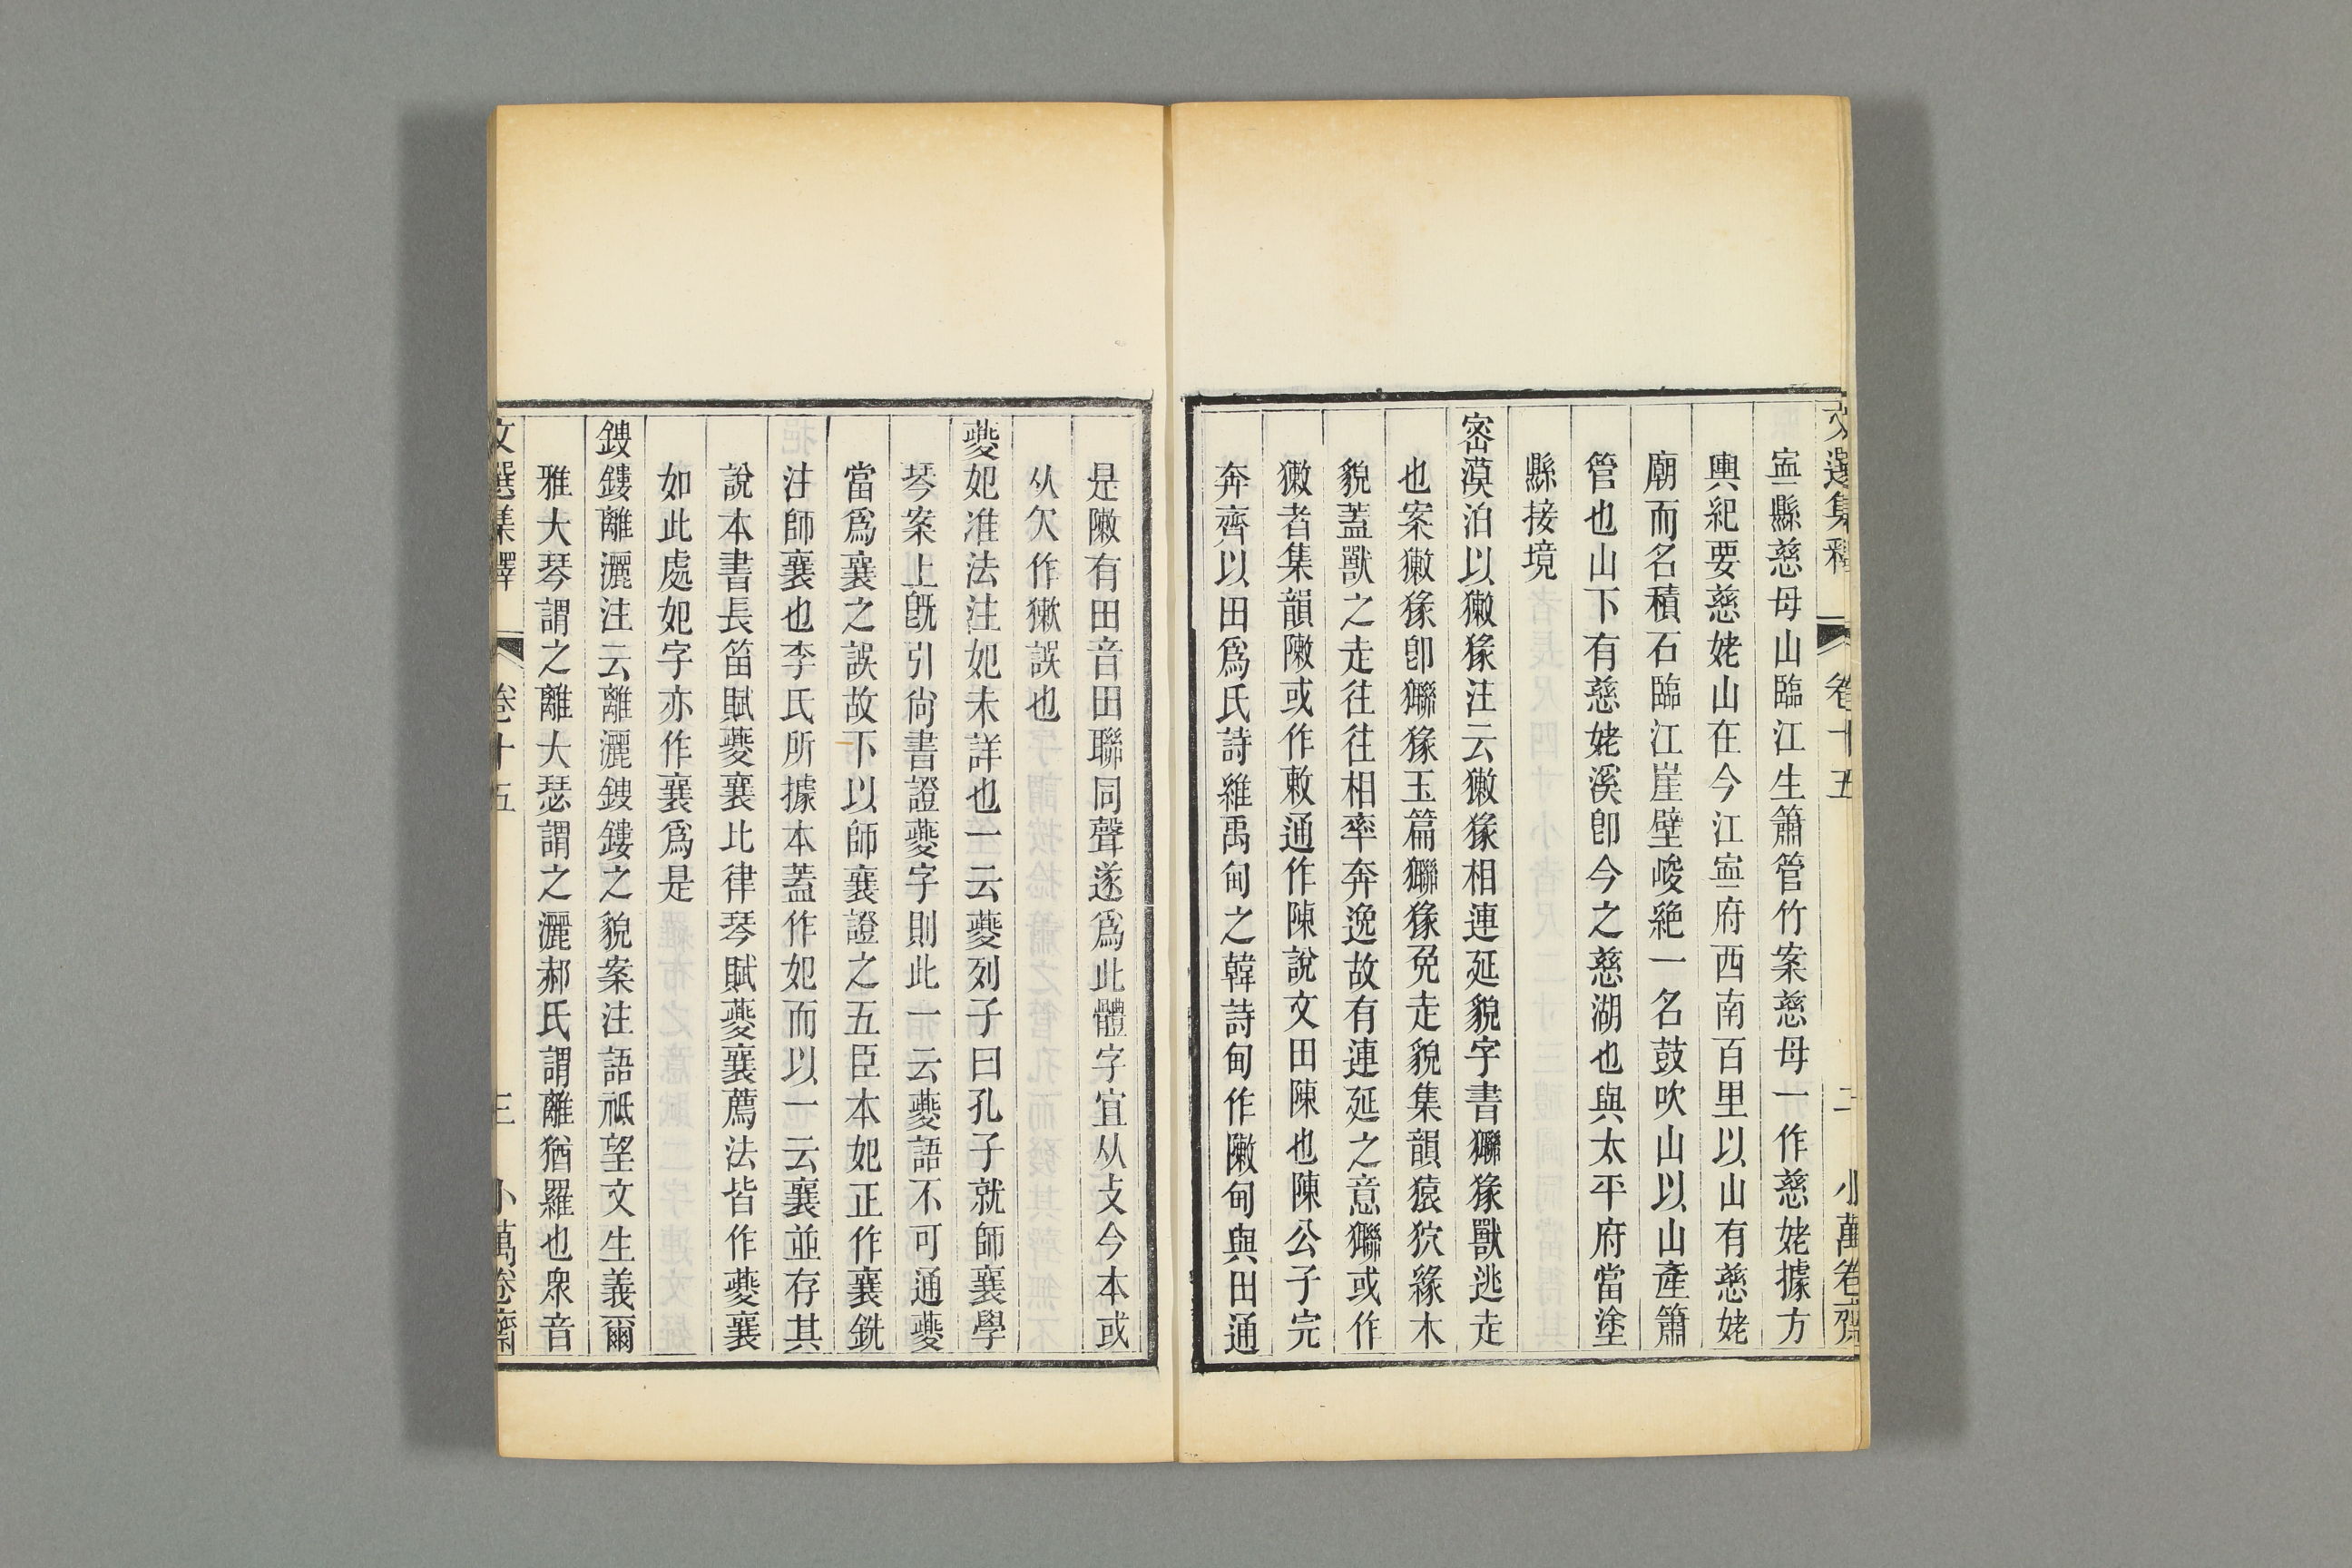 文選集釋 卷十五 二 小萬卷齋
寍縣慈母山臨江生簫管竹案慈母一作慈姥據方
輿紀要慈姥山在今江寍府西南百里以山有慈姥
廟而名積石臨江崖壁峻絶一名鼓吹山以山產簫
管也山下有慈姥溪卽今之慈湖也與太平府當塗
縣接境
密漠泊以獙猭注云獙猭相連延貌字書獙猭獸逃走
也案獙猭卽𤣆猭玉篇𤣆猭兔走貌集韻猿狖緣木
貌蓋獸之走往往相率奔逸故有連延之意𤣆或作
獙者集韻敶或作敕通作陳說文田陳也陳公子完
奔齊以田爲氏詩維禹甸之韓詩甸作敶甸與田通
是敶有田音田聯同聲遂爲此體字宜从攴今本或
从欠作獙誤也
夔妃准法注妃未詳也一云夔列子曰孔子就師襄學
琴案上旣引尙書證夔字則此一云夔語不可通夔
當爲襄之誤故下以師襄證之五臣本妃正作襄銑
注師襄也李氏所據本蓋作妃而以一云襄並存其
說本書長笛賦夔襄比律琴賦夔襄薦法皆作夔襄
如此處妃字亦作襄爲是
鎪鏤離灑注云離灑鎪鏤之貌案注語祗望文生義爾
雅大琴謂之離大瑟謂之灑郝氏謂離猶羅也衆音
文選集釋 卷十五 三 小萬卷齋